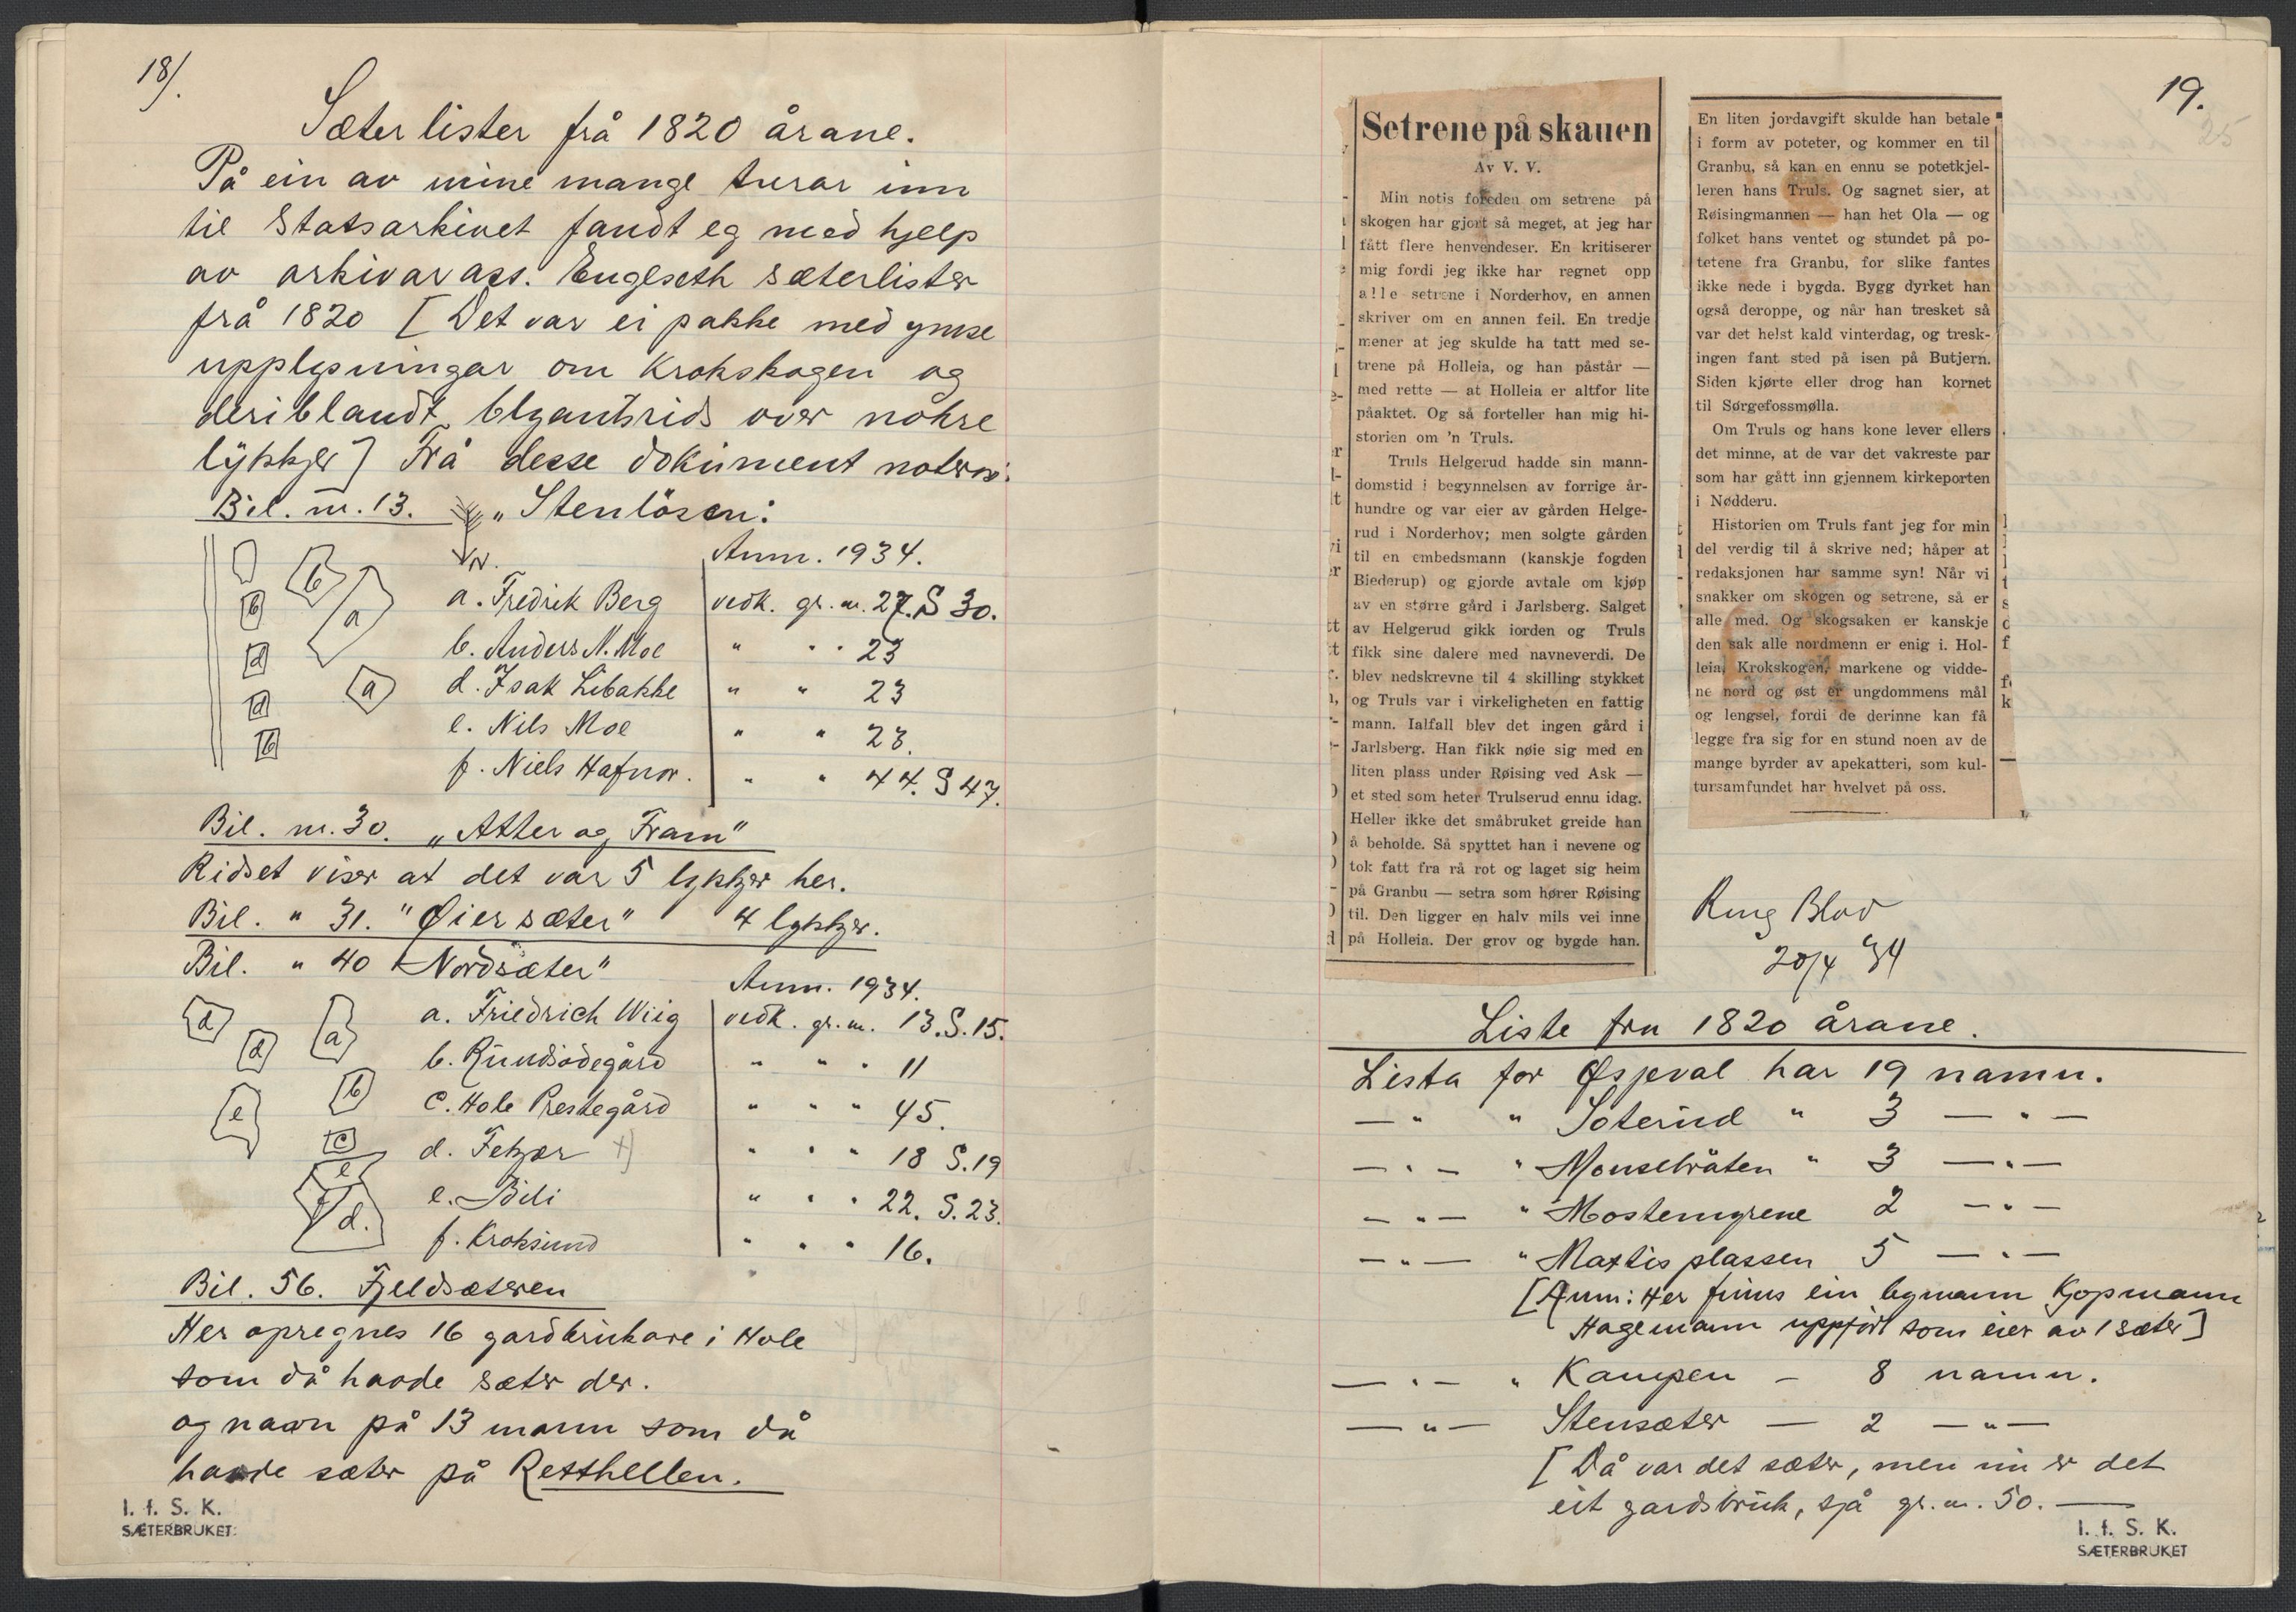 18/.
Sæter lister frå 1820 årane.
På ein av mine mange turar inn
til Statsarkivet fandt eg med hjelp
av arkivarass. Engeseth sæterlister
frå 1820 [Det var ei pakke med ymse
upplysningar om Krokskogen og
deriblandt blyantsrids over nokre
lykkjer] Frå desse dokument noterar:
Bil. nr. 13. „Stenlösen:
N.
Anm. 1934.
a. Fredrik Berg vedk. gr. nr. 27. S 30.
b. Anders N. Moe " " " 23
d. Isak Libakke " " 23
e. Nils Moe " " 23.
f. Niels Hafnor. " " 44. S 47.
b
b
a
d
a
d
b
Bil. nr. 30. „Atter og Fram"
Ridset viser at det var 5 lykkjer her.
Bil. " 31. "Øiersæter" 4 lykkjer.
Bil. " 40 "Nordsæter"
Anm. 1934.
a. Friedrich Wiig vedk. gr. nr. 13. S. 15.
b. Rundsødegård " " " 11
c. Hole Prestegård " " " 45.
d. Fekjær +) " " " 18 S. 19
e. Bili " " " 22. S. 23.
f. Kroksund " " " 16.
d
d
a
b
e
c
e
f
d.
Bil. 56. Fjeldsæteren
Her opregnes 16 gardbrukare i Hole
som då havde sæter der.
og navn på 13 mann som då
havde sæter på Retthellen.
I. f. S. K.
SÆTERBRUKET
19.
25
Setrene på skauen
Av V. V.
Min notis forleden om setrene på
skogen har gjort så meget, at jeg har
fått flere henvendeser. En kritiserer
mig fordi jeg ikke har regnet opp
alle setrene i Norderhov, en annen
skriver om en annen feil. En tredje
mener at jeg skulde ha tatt med se-
trene på Holleia, og han påstår —
med rette — at Holleia er altfor lite
påaktet. Og så forteller han mig hi-
storien om 'n Truls.
Truls Helgerud hadde sin mann-
domstid i begynnelsen av forrige år-
hundre og var eier av gården Helge-
rud i Norderhov; men solgte gården
til en embedsmann (kanskje fogden
Biederup) og gjorde avtale om kjøp
av en større gård i Jarlsberg. Salget
av Helgerud gikk iorden og Truls
fikk sine dalere med navneverdi. De
blev nedskrevne til 4 skilling stykket
og Truls var i virkeligheten en fattig
mann. Ialfall blev det ingen gård i
Jarlsberg. Han fikk nøie sig med en
liten plass under Røising ved Ask —
et sted som heter Trulserud ennu idag.
Heller ikke det småbruket greide han
å beholde. Så spyttet han i nevene og
tok fatt fra rå rot og laget sig heim
på Granbu — setra som hører Røising
til. Den ligger en halv mils vei inne
på Holleia. Der grov og bygde han.
En liten jordavgift skulde han betale
i form av poteter, og kommer en til
Granbu, så kan en ennu se potetkjel-
leren hans Truls. Og sagnet sier, at
Røisingmannen — han het Ola — og
folket hans ventet og stundet på po-
tetene fra Granbu, for slike fantes
ikke nede i bygda. Bygg dyrket han
også deroppe, og når han tresket så
var det helst kald vinterdag, og tresk-
ingen fant sted på isen på Butjern.
Siden kjørte eller drog han kornet
til Sørgefossmølla.
Om Truls og hans kone lever ellers
det minne, at de var det vakreste par
som har gått inn gjennem kirkeporten
i Nødderu.
Historien om Truls fant jeg for min
del verdig til å skrive ned; håper at
redaksjonen har samme syn! Når vi
snakker om skogen og setrene, så er
alle med. Og skogsaken er kanskje
den sak alle nordmenn er enig i. Hol-
leia, Krokskogen, markene og vidde-
ne nord og øst er ungdommens mål
og lengsel, fordi de derinne kan få
legge fra sig for en stund noen av de
mange byrder av apekatteri, som kul-
tursamfundet har hvelvet på oss.
Ring Blad
20/4 34
Liste fra 1820 årane.
Lista for Øspeval har 19 namn.
— " " Soterud " 3 — " —
— " — " Monsebråten " 3 — " —
— " — " Mostemyrene 2 — " —
— " — " Mattisplassen 5 — " —
[Anm: Her finns ein bymann Kjøpmann
Hagemann uppført som eier av 1 sæter]
— " — " Kampen — 8 namn.
— " — Stensæter — 2 — " —
[Då var det sæter, men nu er det
eit gardsbruk, sjå gr. nr. 50. —
I. f. S. K.
SÆTERBRUKET